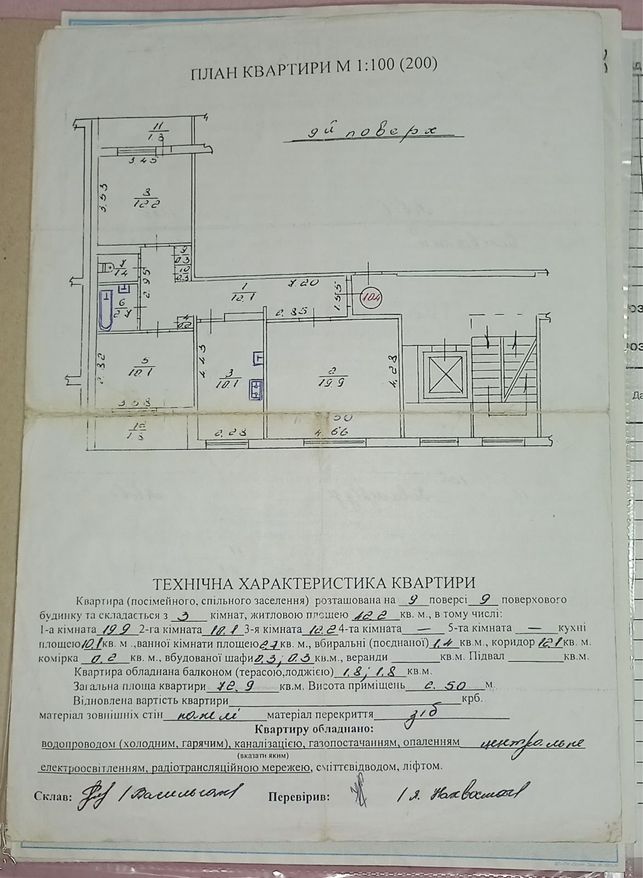 ПЛАН КВАРТИРИ М 1:100 (200)
9й поверх
11
1.8
3.45
3.53
3
12.2
7
1.4
2.95
9
0.3
10
0.3
6
2.7
1
12.1
7.20
1.55
104
8
0.2
2.85
2.82
5
10.1
4.43
3
10.1
2
19.9
4.23
3.58
12
1.8
2.23
4.66
ТЕХНІЧНА ХАРАКТЕРИСТИКА КВАРТИРИ
Квартира (посімейного, спільного заселення) розташована на 9 поверсі 9 поверхового
будинку та складається з 3 кімнат, житловою площею 42.2 кв. м., в тому числі:
1-а кімната 19.9 2-га кімната 10.1 3-я кімната 12.2 4-та кімната — 5-та кімната — кухні
площею 10.1 кв. м .,ванної кімнати площею 2.7 кв. м., вбиральні (поєднаної) 1.4 кв. м., коридор 12.1 кв. м.
комірка 0.2 кв. м., вбудованої шафи 0.3; 0.3 кв.м., веранди кв. м. Підвал кв.м.
Квартира обладнана балконом (терасою,лоджією) 1.8; 1.8 кв.м.
Загальна площа квартири 72.9 кв.м. Висота приміщень 2.50 м.
Відновлена вартість квартири крб.
матеріал зовнішніх стін панелі матеріал перекриття з/б
Квартиру обладнано:
водопроводом (холодним, гарячим), каналізацією, газопостачанням, опаленням центральне
(вказати яким)
електроосвітленням, радіотрансляційною мережею, сміттєвідводом, ліфтом.
Склав: Перевірив: